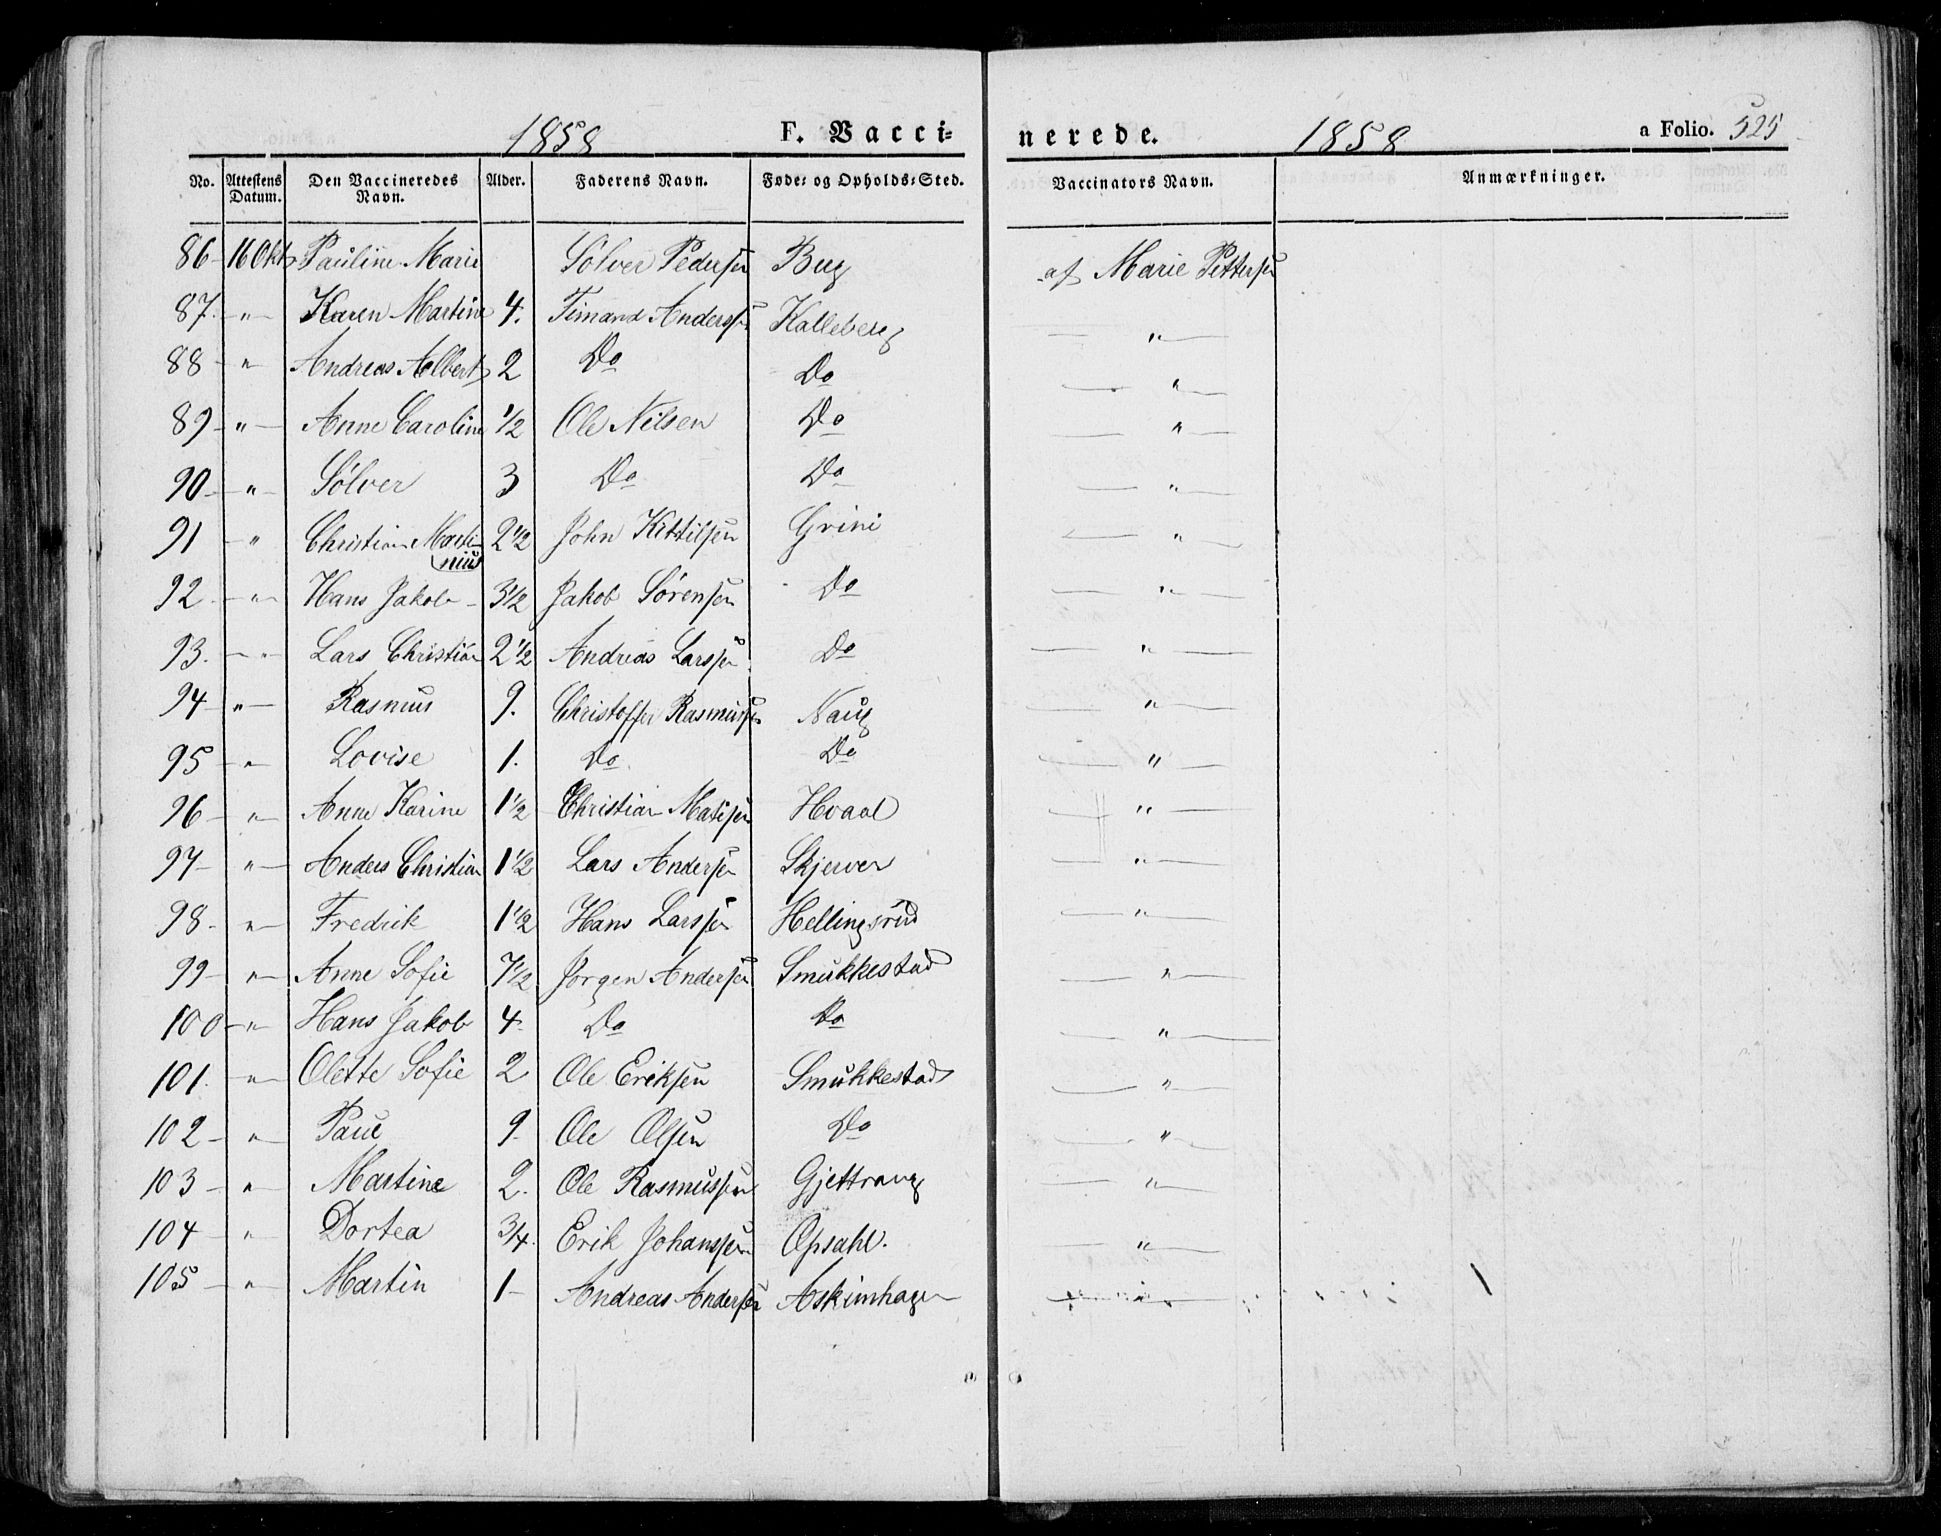 1858 F. Vacci= nerede. 1858 a Folio. 525
No. Attestens Datum. Den Vaccineredes Navn. Alder. Faderens Navn. Føde= og Opholds=Sted. Vaccinators Navn. Anmærkninger.
86 16 Okt Pauline Marie Sølver Pedersen Berg af Marie Pettersen
87. " Karen Martine 4. Timand Anderssen Kalleberg "
88 " Andreas Albert 2 Do Do "
89 " Anne Caroline 1/2 Ole Nilsen Do "
90 " Sølver 3 Do Do "
91 " Christian Marti- 2 1/2 John Kittilsen Grini "
nius
92 " Hans Jakob 3 1/2 Jakob Sørensen Do "
93. " Lars Christian 2 1/2 Andreas Larssen Do "
94 " Rasmus 9. Christoffer Rasmussen Naug "
95 " Lovise 1. Do Do "
96 " Anne Karine 1 1/2 Christian Matisen Hvaal "
97 " Anders Christian 1 1/2 Lars Andersen Skjerver "
98. " Fredrik 1 1/2 Hans Larssen Hellingsrud "
99 " Anne Sofie 7 1/2 Jørgen Andersen Smukkestad "
100 " Hans Jakob 4 Do Do "
101. " Olette Sofie 2 Ole Eriksen Smukkestad "
102 " Paul 9. Ole Olsen Do "
103 " Martine 2. Ole Rasmussen Gjettrang "
104 " Dortea 3/4. Erik Johanssen Opsahl. "
105 " Martin 1 Andreas Andersen Askimhagen "